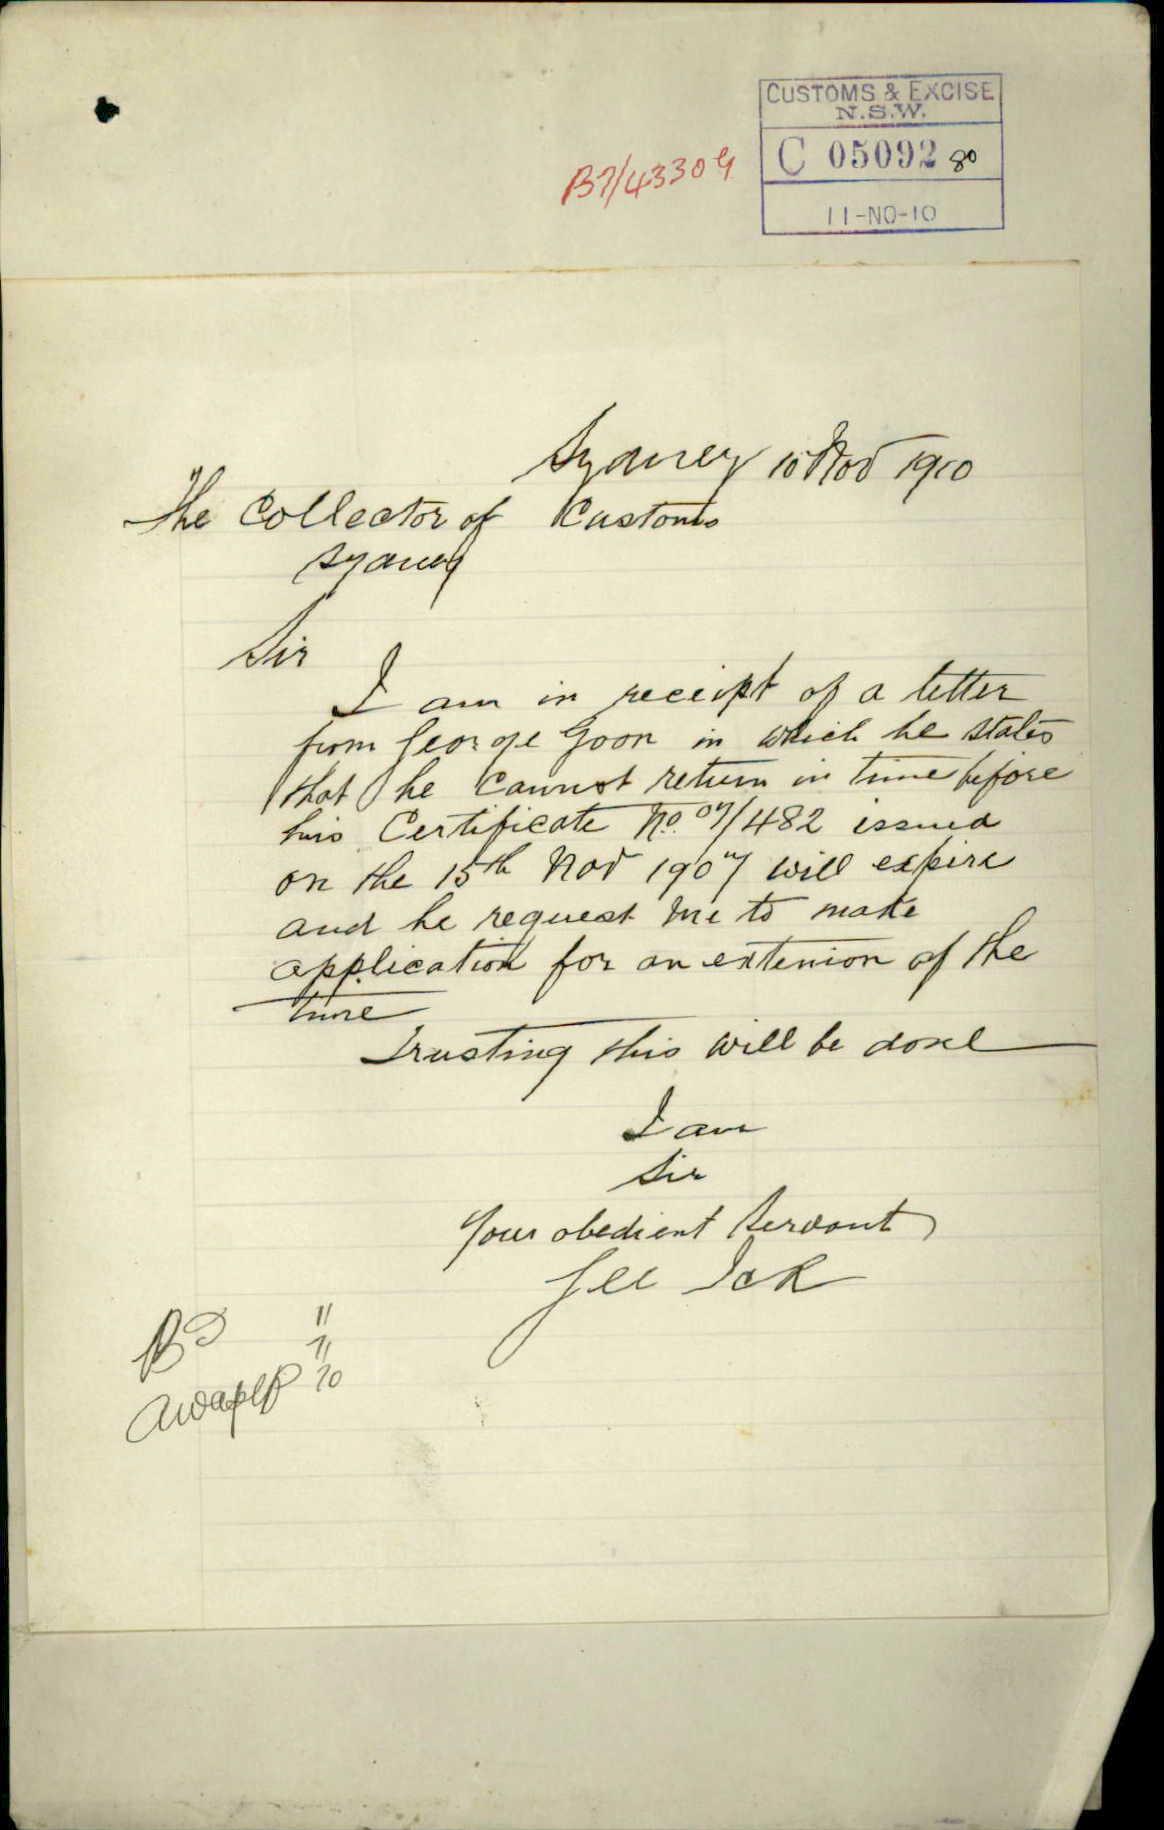 CUSTOMS & EXCISE
N.S.W.
C 05092 80
11-NO-10
B7/43309
Sydney 10 Nov 1910
The Collector of Customs
Sydney
Sir
I am in receipt of a letter
from George Goon in which he states
that he cannot return in time before
his Certificate No. 07/482 issued
on the 15th Nov 1907 will expire
and he request me to make
application for an extenion of the
time
Trusting this will be done
I am
Sir
Your obedient Servant
Gee Ick
11
11
10